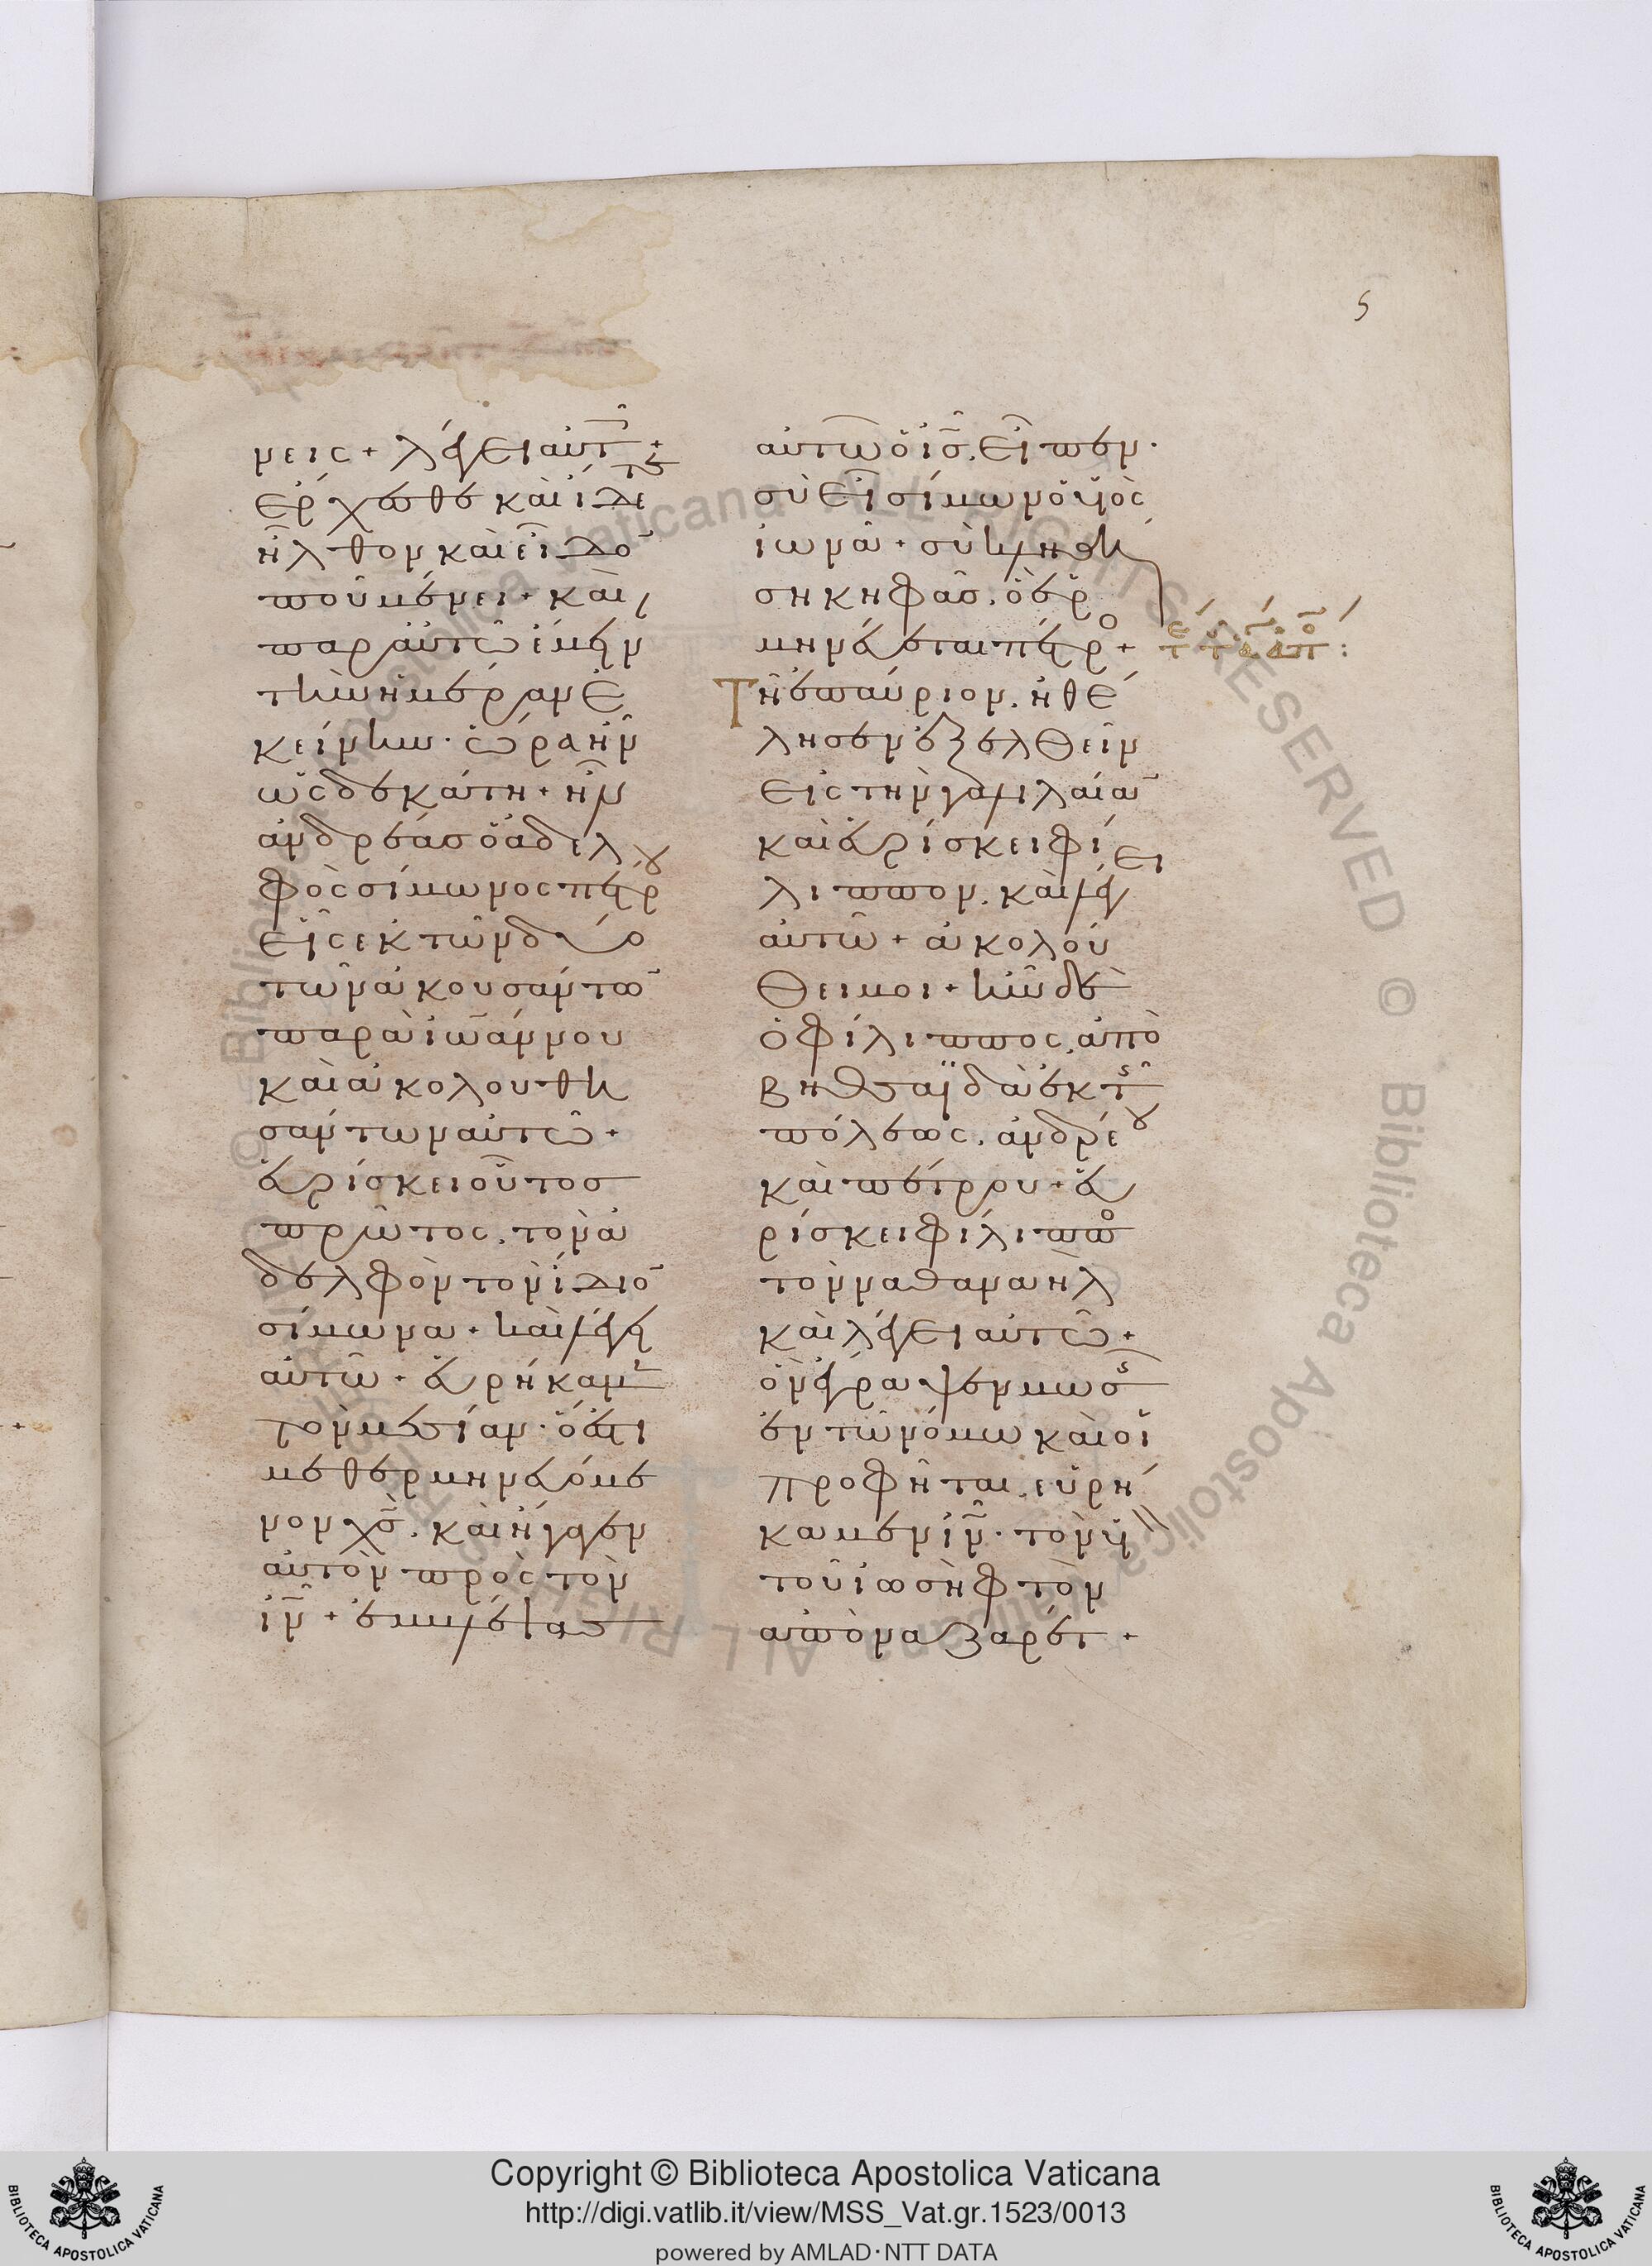 5
μεις + λέγει αὐτοῖς +
ἔρχεσθε καὶ ἴδετε
ἦλθον καὶ εἶδον
ποῦ μένει + καὶ
παρ αὐτῶ ἔμειναν
τὴν ἡμέραν ἐ
κείνην · ὥρα ἦν
ὡς δεκάτη + ἦν
ἀνδρέας ὁ ἀδελ
φὸς σίμωνος πέτρου
εἷς ἐκ τῶν δύο
τῶν ἀκουσάντων
παρὰ ἰωάννου
καὶ ἀκολουθη
σάντων αὐτῶ +
εὑρίσκει οὗτος
πρῶτος . τὸν ἀ
δελφὸν τὸν ἴδιον
σίμωνα + καὶ λέγει
αὐτῶ + εὑρήκαμεν
τὸν μεσίαν · ὅ ἐστι
μεθερμηνευόμε
νον χς̅ . καὶ ἤγαγεν
αὐτὸν πρὸς τὸν
ιν̅ + ἐμβλέψας
αὐτῶ ὁ ις̅ . εἶπεν ·
σὺ εἶ σίμων ὁ υἱὸς
ἰωνᾶ + σὺ κληθή
ση κηφᾶς . ὃ ἑρ
μηνεύεται πέτρος +
Τῆ ἐπαύριον . ἠθέ
λησεν ἐξελθεῖν
εἰς τὴν γαλιλαίαν
καὶ εὑρίσκει φί
λιππον . καὶ λέγει
αὐτῶ + ἀκολού
θει μοι + ἦν δὲ
ὁ φίλιππος . ἀπὸ
βηθσαϊδὰ ἐκ τῆς
πόλεως . ἀνδρέου
καὶ πέτρου + εὑ
ρίσκει φίλιππος
τὸν ναθαναὴλ
καὶ λέγει αὐτῶ +
ὃν ἔγραψεν μωσῆς
ἐν τῶ νόμω καὶ οἱ
προφῆται . εὑρή
καμεν ιν̅ · τὸν υἱὸν
τοῦ ἰωσὴφ τὸν
ἀπὸ ναζαρέτ +
Copyright © Biblioteca Apostolica Vaticana
http://digi.vatlib.it/view/MSS_Vat.gr.1523/0013
powered by AMLAD·NTT DATA
BIBLIOTECA APOSTOLICA VATICANA
BIBLIOTECA APOSTOLICA VATICANA